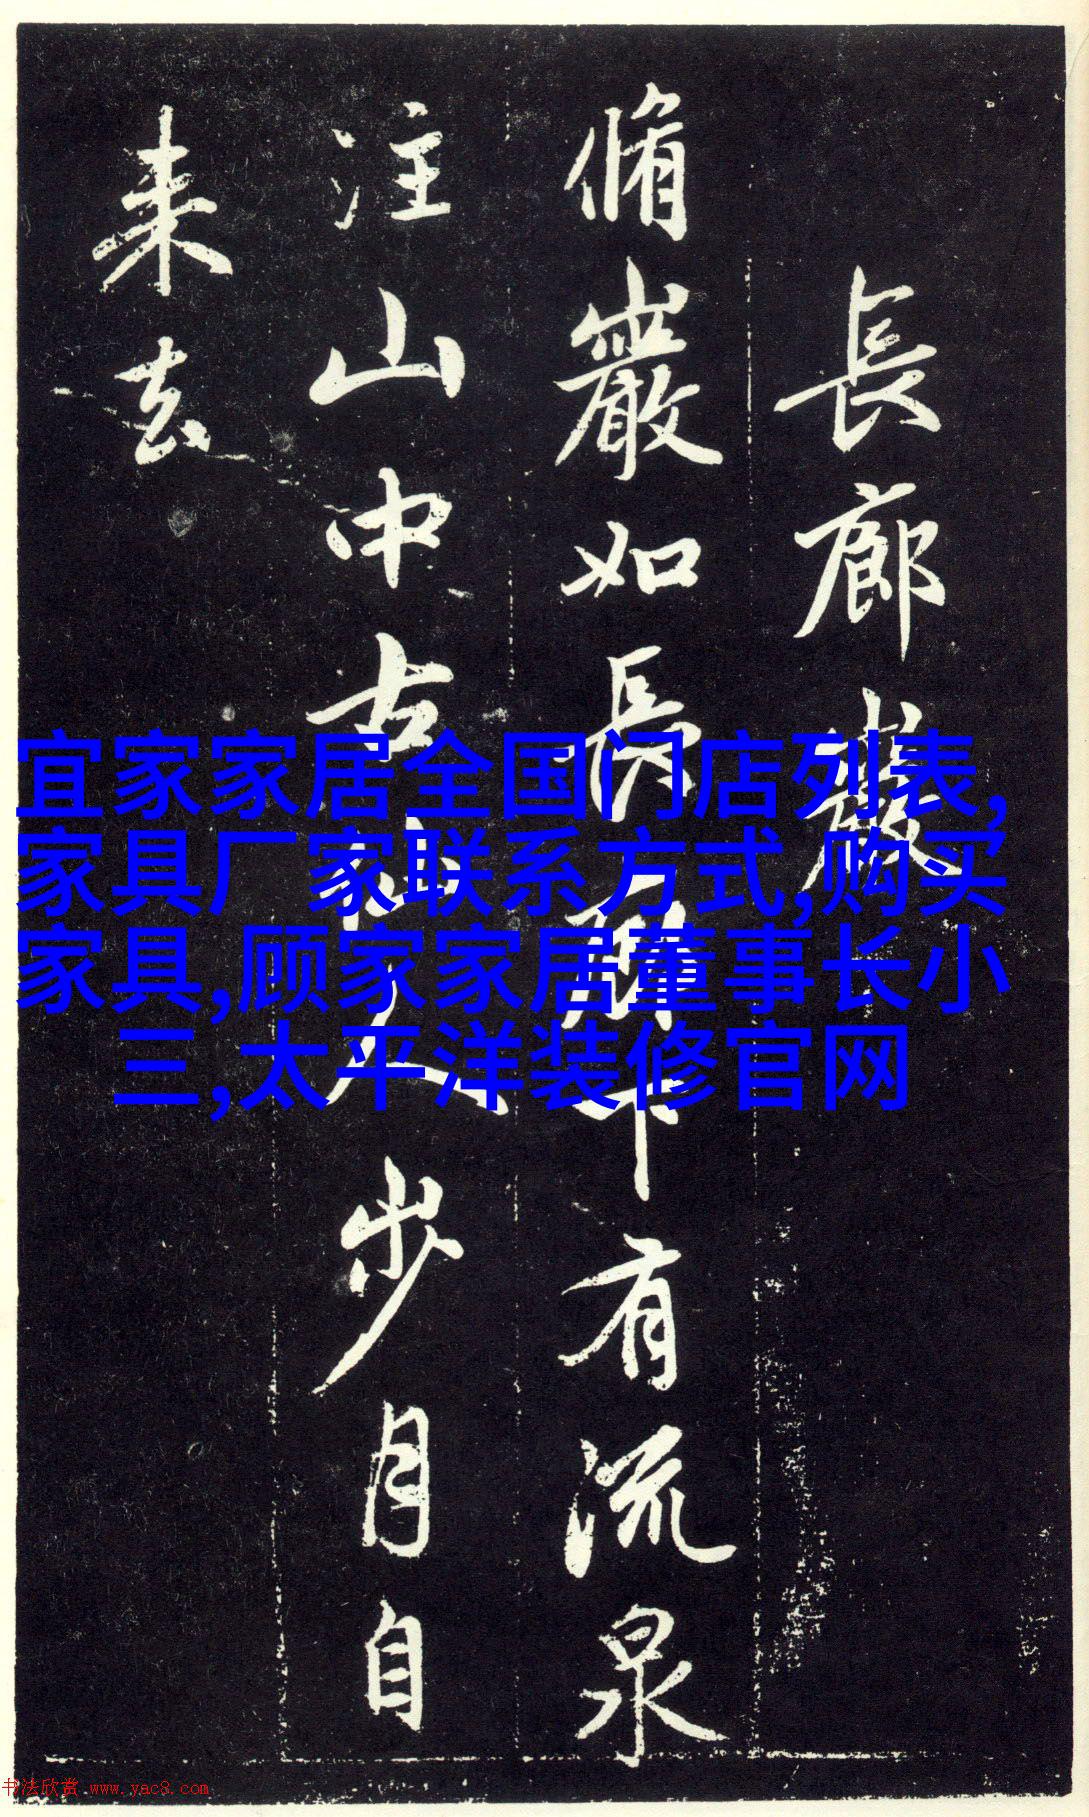 長廊巖
脩巖如長廊下有流泉
注山中古仙人步月自
来去
宜家家居全国门店列表,
家具厂家联系方式,购买
家具,顾家家居董事长小
三,太平洋装修官网
书法欣赏 www.yac8.com